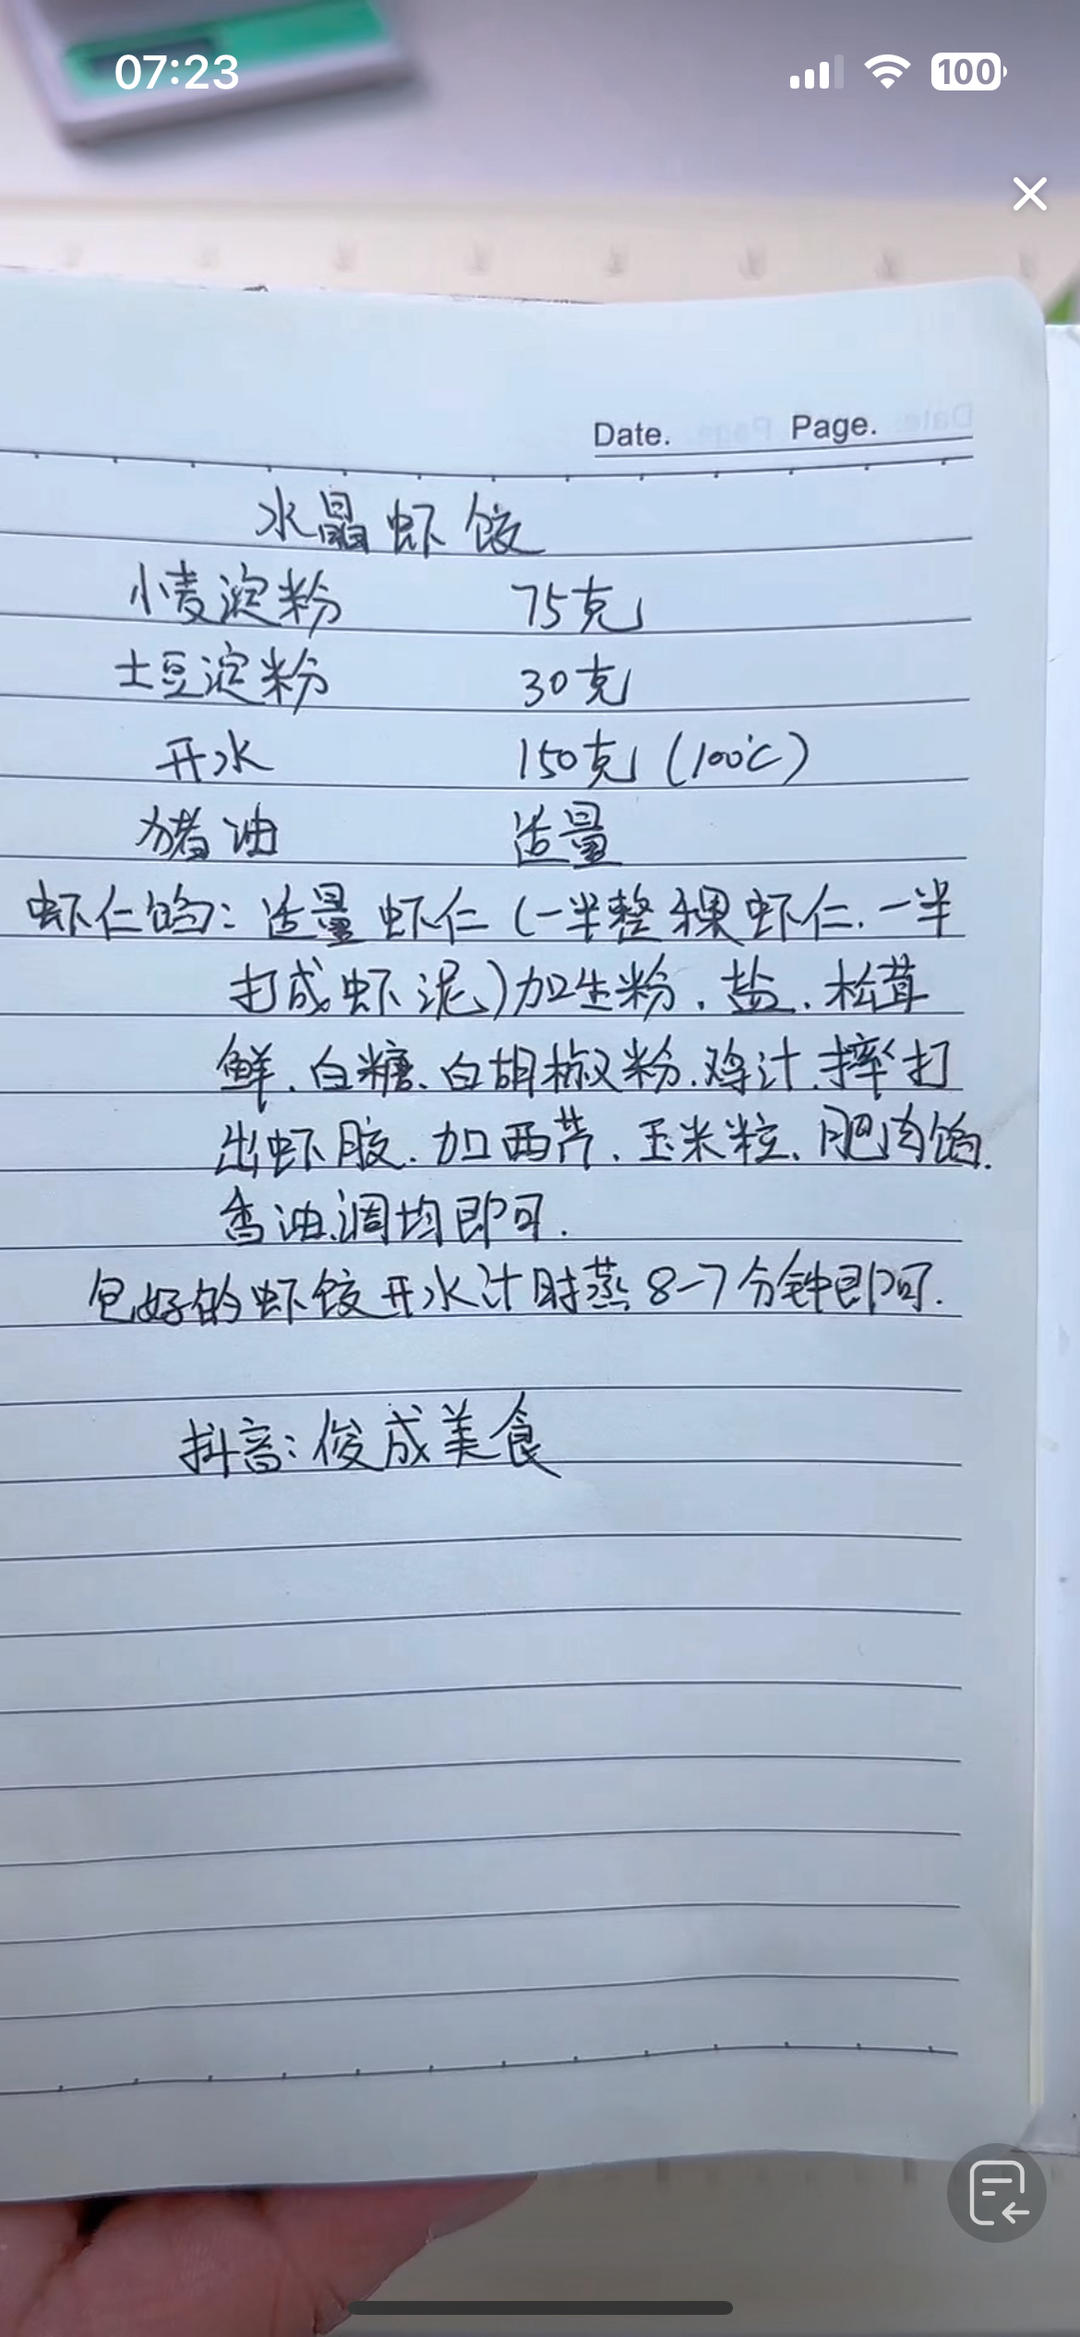 07:23
100
Date. Page.
水晶虾饺
小麦淀粉 75克
土豆淀粉 30克
开水 150克（100℃）
猪油 适量
虾仁馅：适量虾仁（一半整粿虾仁.一半
打成虾泥）加生粉.盐.松茸
鲜.白糖、白胡椒粉.鸡汁.摔打
出虾胶.加西芹、玉米粒、肥肉馅.
香油、调均即可.
包好的虾饺开水计时蒸8-7分钟即可.
抖音：俊成美食